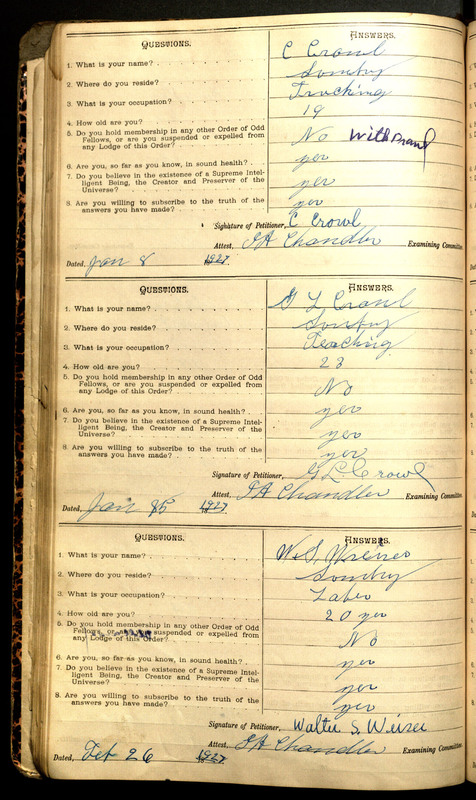 QUESTIONS. ANSWERS.
1. What is your name? C Crowl
2. Where do you reside? Sonby
3. What is your occupation? Trucking
4. How old are you? 19
5. Do you hold membership in any other Order of Odd
Fellows, or are you suspended or expelled from
any Lodge of this Order? No Withdrawl
6. Are you, so far as you know, in sound health? yes
7. Do you believe in the existence of a Supreme Intel-
ligent Being, the Creator and Preserver of the
Universe? yes
8. Are you willing to subscribe to the truth of the
answers you have made? yes
Signature of Petitioner, C Crowl
Attest, Chandler Examining Committee
Dated, Jan 8 1927
QUESTIONS. ANSWERS.
1. What is your name? G L Crowl
2. Where do you reside? Sonby
3. What is your occupation? Teaching
4. How old are you? 23
5. Do you hold membership in any other Order of Odd
Fellows, or are you suspended or expelled from
any Lodge of this Order? No
6. Are you, so far as you know, in sound health? yes
7. Do you believe in the existence of a Supreme Intel-
ligent Being, the Creator and Preserver of the
Universe? yes
8. Are you willing to subscribe to the truth of the
answers you have made? yes
Signature of Petitioner, G L Crowl
Attest, Chandler Examining Committee
Dated, Jan 1927
QUESTIONS. ANSWERS.
1. What is your name? W. S.
2. Where do you reside? Sonby
3. What is your occupation? Labor
4. How old are you? 20 yes
5. Do you hold membership in any other Order of Odd
Fellows, or are you suspended or expelled from
any Lodge of this Order? No
6. Are you, so far as you know, in sound health? yes
7. Do you believe in the existence of a Supreme Intel-
ligent Being, the Creator and Preserver of the
Universe? yes
8. Are you willing to subscribe to the truth of the
answers you have made? yes
Signature of Petitioner, Walter S. Weiser
Attest, Chandler Examining Committee
Dated, Feb 26 1927